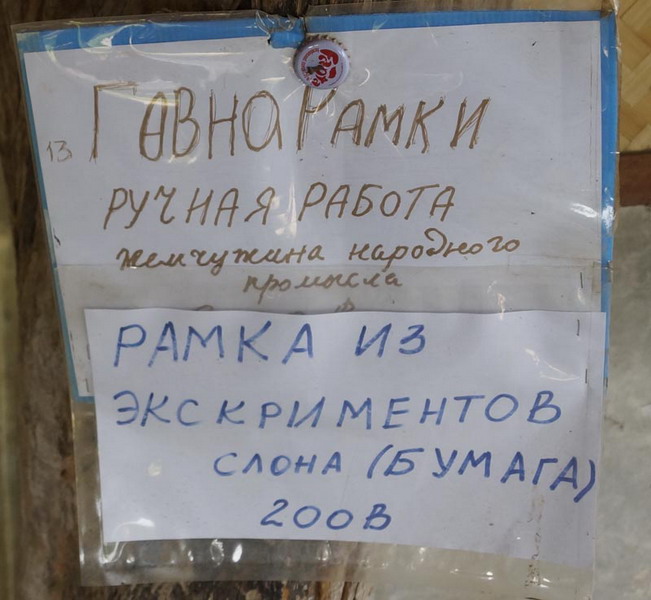 13.
ГОВНОРАМКИ
РУЧНАЯ РАБОТА
жемчужина народного
промысла
РАМКА ИЗ
ЭКСКРИМЕНТОВ
СЛОНА (БУМАГА)
200В